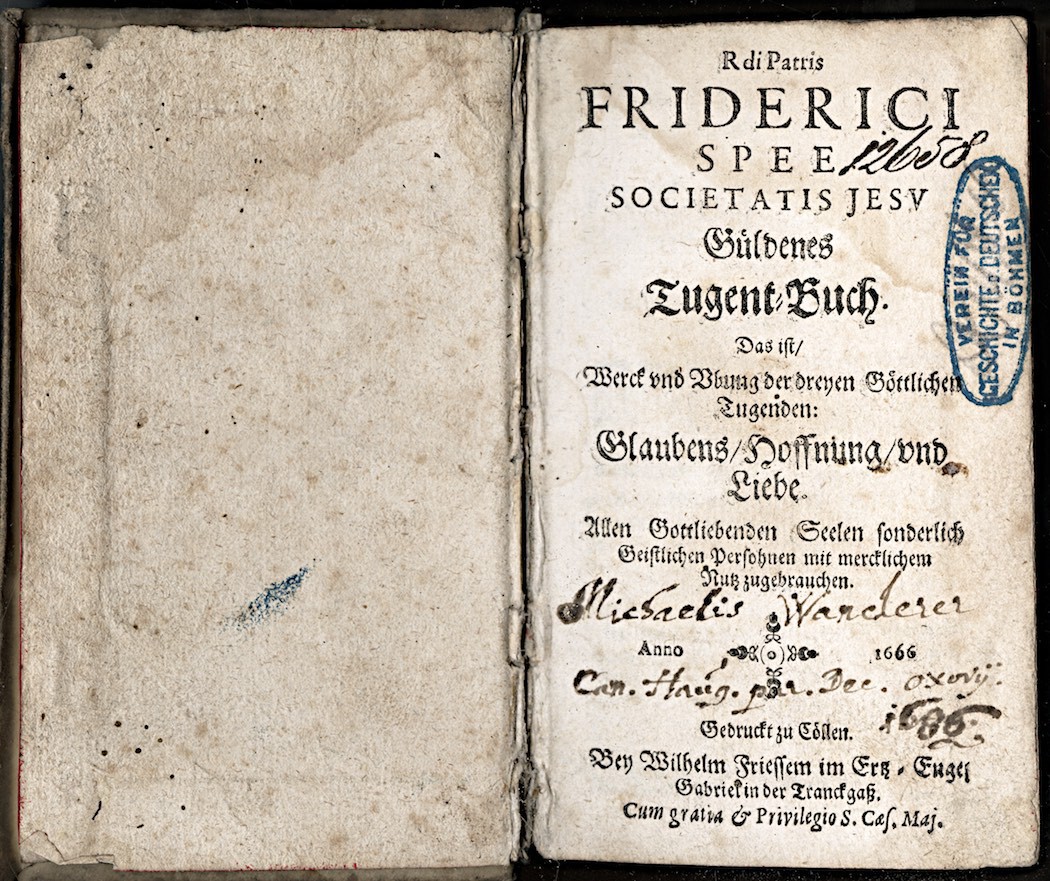 R di Patris
FRIDERICI
SPEE
12658
SOCIETATIS JESV
Güldenes
Tugent-Buch.
Das ist/
Werck vnd Vbung der dreyen Göttlichen
Tugenden:
Glaubens/Hoffnung/vnd
Liebe.
Allen Gottliebenden Seelen sonderlich
Geistlichen Persohnen mit mercklichem
Nutz zugebrauchen.
Michaelis Wanderer
Anno 1666
Can. Haug. Dec.
1686.
Gedruckt zu Cöllen.
Bey Wilhelm Friessem im Ertz-Engel
Gabriel in der Tranckgaß.
Cum gratia & Privilegio S. Cæs. Maj.
VEREIN FÜR
GESCHICHTE D. DEUTSCHEN
IN BÖHMEN